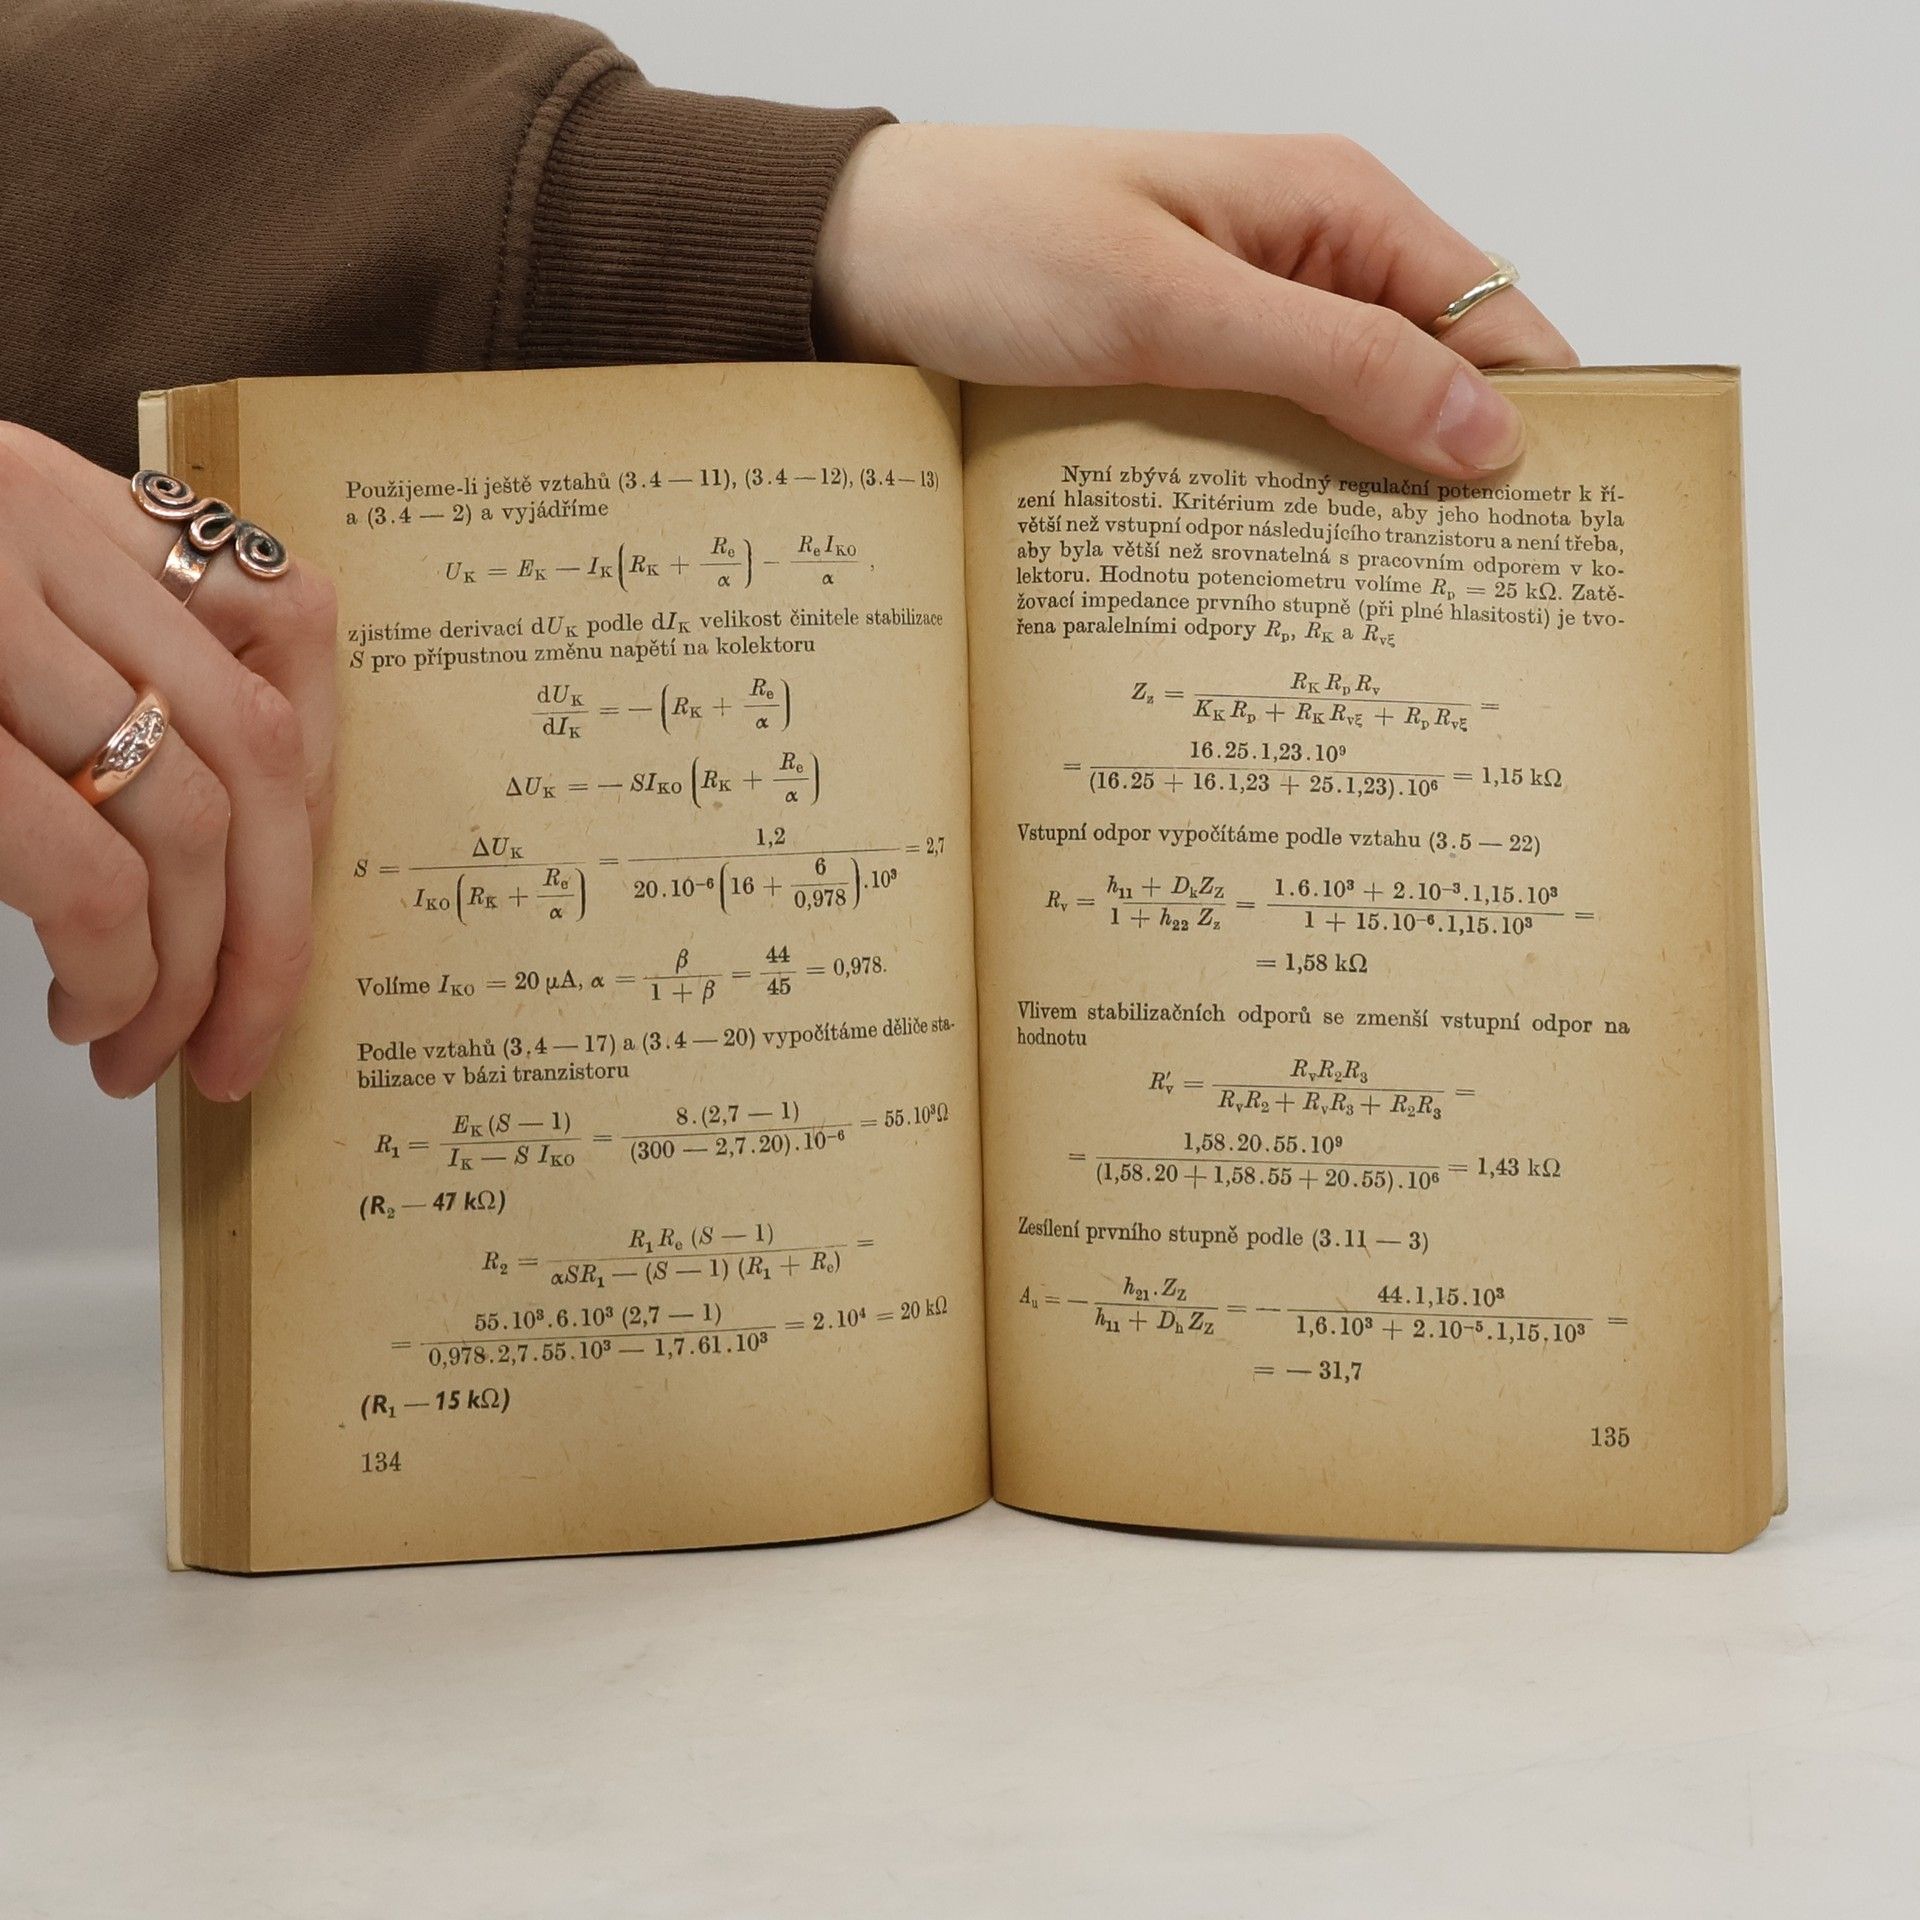 Použijeme-li ještě vztahů (3.4 — 11), (3.4 — 12), (3.4 — 13)
a (3.4 — 2) a vyjádříme
U_K = E_K — I_K (R_K + R_e/α) − R_e I_KO/α ,
zjistíme derivací dU_K podle dI_K velikost činitele stabilizace
S pro přípustnou změnu napětí na kolektoru
dU_K/dI_K = — (R_K + R_e/α)
ΔU_K = — SI_KO (R_K + R_e/α)
S = ΔU_K/(I_KO (R_K + R_e/α)) = 1,2/(20.10⁻⁶ (16 + 6/0,978).10³) = 2,7
Volíme I_KO = 20 μA, α = β/(1 + β) = 44/45 = 0,978.
Podle vztahů (3.4 — 17) a (3.4 — 20) vypočítáme děliče sta-
bilizace v bázi tranzistoru
R₁ = E_K (S — 1)/(I_K — S I_KO) = 8.(2,7 — 1)/((300 — 2,7.20).10⁻⁶) = 55.10³Ω
(R₂ — 47 kΩ)
R₂ = R₁ R_e (S — 1)/(αSR₁ — (S — 1) (R₁ + R_e)) =
= 55.10³.6.10³ (2,7 — 1)/(0,978.2,7.55.10³ — 1,7.61.10³) = 2.10⁴ = 20 kΩ
(R₁ — 15 kΩ)
134
Nyní zbývá zvolit vhodný regulační potenciometr k ří-
zení hlasitosti. Kritérium zde bude, aby jeho hodnota byla
větší než vstupní odpor následujícího tranzistoru a není třeba,
aby byla větší než srovnatelná s pracovním odporem v ko-
lektoru. Hodnotu potenciometru volíme R_p = 25 kΩ. Zatě-
žovací impedance prvního stupně (při plné hlasitosti) je tvo-
řena paralelními odpory R_p, R_K a R_vξ
Z_z = R_K R_p R_v/(K_K R_p + R_K R_vξ + R_p R_vξ) =
= 16.25.1,23.10⁹/((16.25 + 16.1,23 + 25.1,23).10⁶) = 1,15 kΩ
Vstupní odpor vypočítáme podle vztahu (3.5 — 22)
R_v = (h₁₁ + D_k Z_Z)/(1 + h₂₂ Z_z) = (1.6.10³ + 2.10⁻³.1,15.10³)/(1 + 15.10⁻⁶.1,15.10³) =
= 1,58 kΩ
Vlivem stabilizačních odporů se zmenší vstupní odpor na
hodnotu
R′_v = R_v R₂ R₃/(R_v R₂ + R_v R₃ + R₂ R₃) =
= 1,58.20.55.10⁹/((1,58.20 + 1,58.55 + 20.55).10⁶) = 1,43 kΩ
Zesílení prvního stupně podle (3.11 — 3)
A_u = — h₂₁.Z_Z/(h₁₁ + D_h Z_Z) = — 44.1,15.10³/(1,6.10³ + 2.10⁻⁵.1,15.10³) =
= — 31,7
135